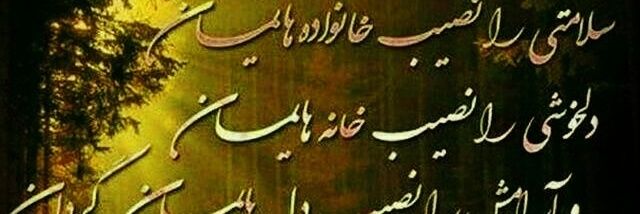 سلامتی را نصیب خانواده هایمان
دلخوشی را نصیب خانه هایمان
و آرامش را نصیب دل هایمان گردان